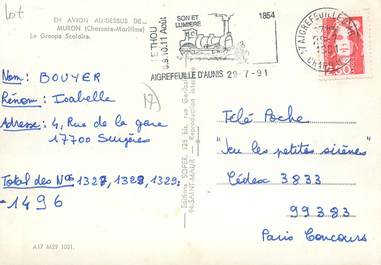 Lot
EN AVION AU-DESSUS DE...
MURON (Charente-Maritime)
Le Groupe Scolaire.
LE THOU
8.9.10.11 Août
SON ET
LUMIERE
1854
AIGREFEUILLE D'AUNIS 29-7-91
17 AIGREFEUILLE
2,50
Nom: BOUYER
Prénom: Isabelle
Adresse: 4, Rue de la gare
17700 Surgères
17
Total des Nos 1327, 1328, 1329:
-1496
A17 M29 1001.
Editions SOFER, 125 bis, rue Garibaldi
94-SAINT-MAUR - Reproduction
Télé Poche
"Jeu les petites sirènes"
Cédex 3833
99383
Paris Concours